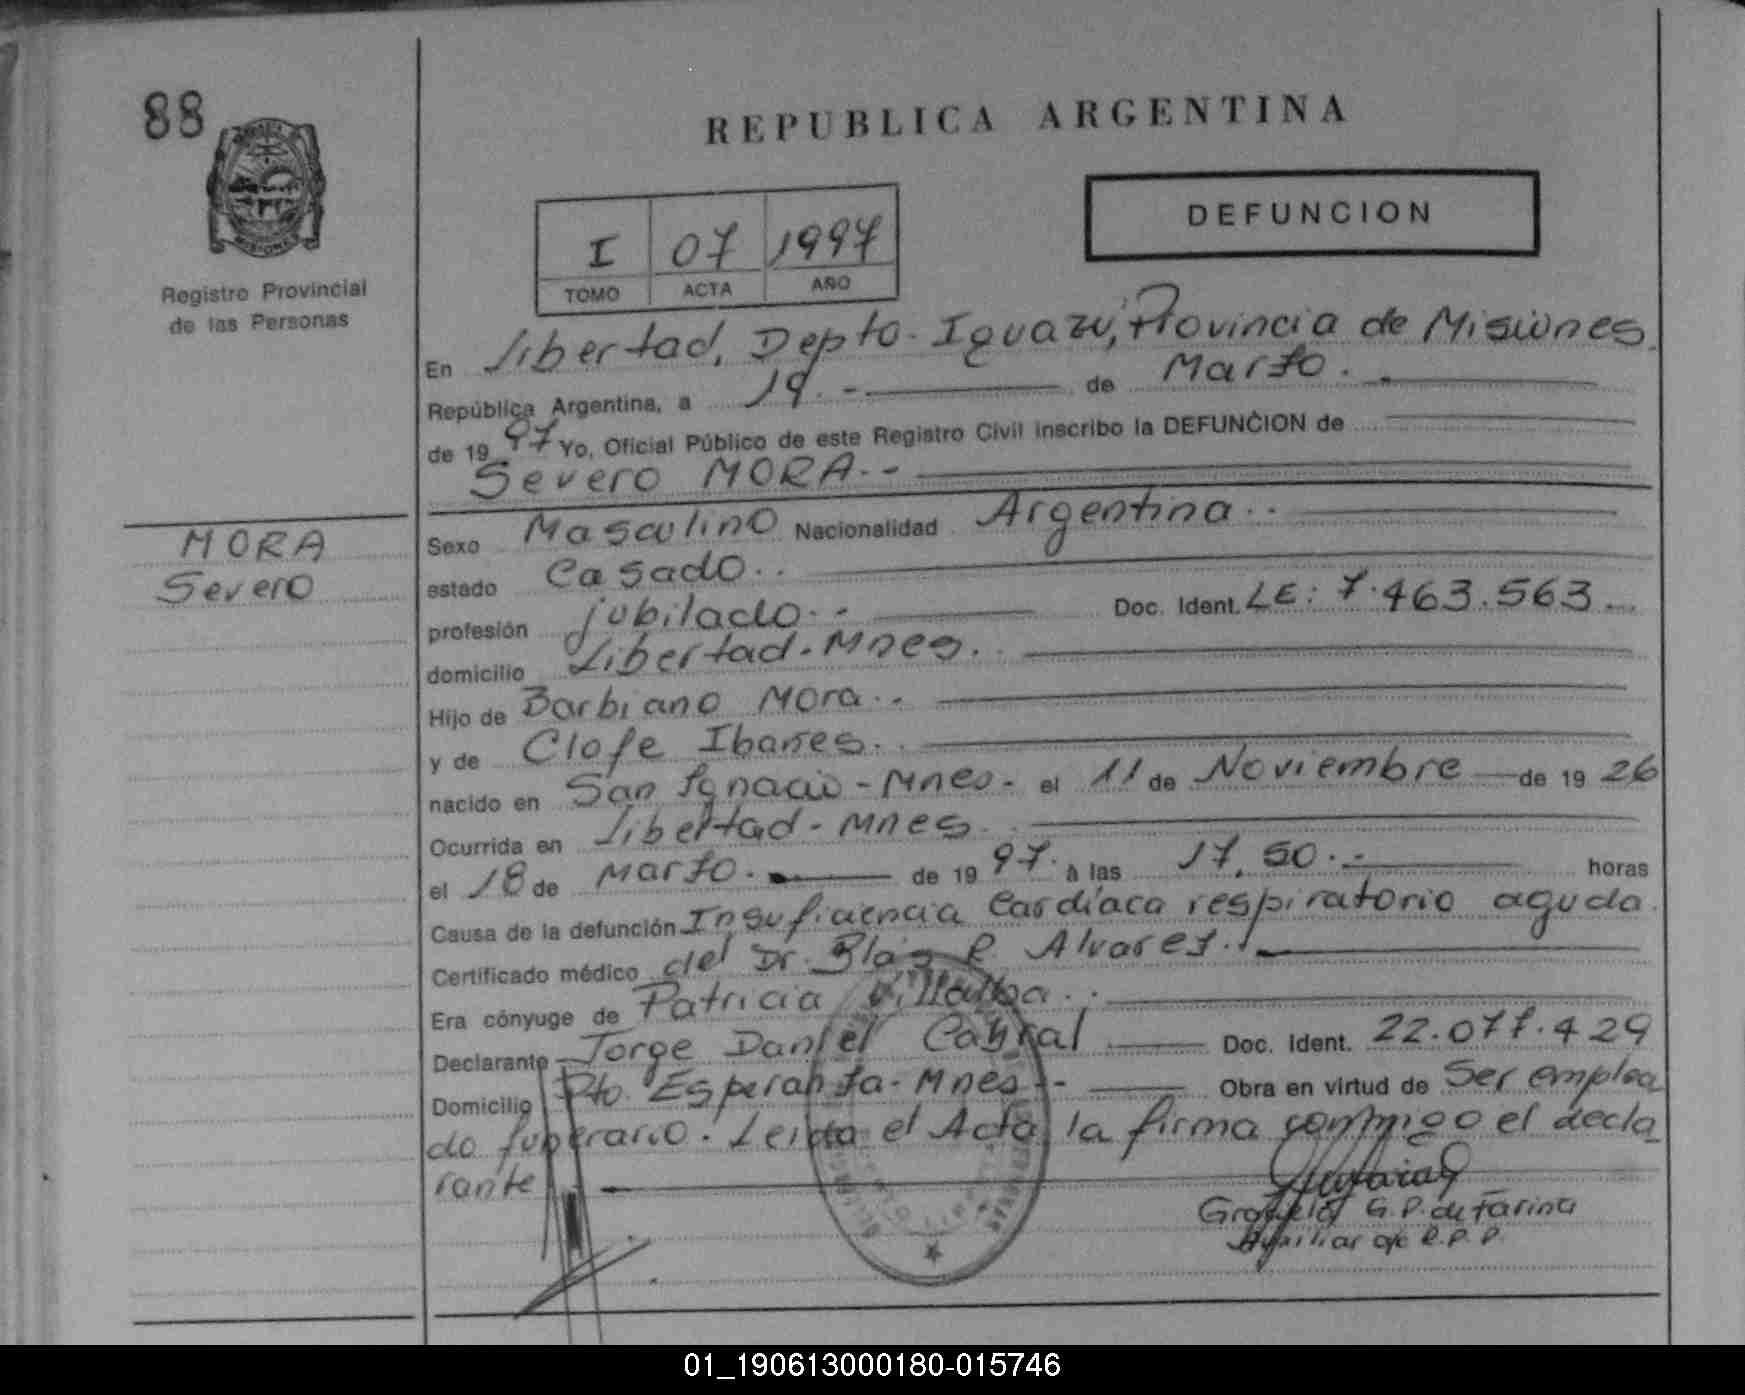 88
REPUBLICA ARGENTINA
MISIONES
Registro Provincial
de las Personas
I 07 1997
TOMO ACTA AÑO
DEFUNCION
En Libertad, Depto. Iguazu, Provincia de Misiones.
República Argentina, a 19.- de Marzo.
de 19 97 Yo, Oficial Público de este Registro Civil inscribo la DEFUNCION de
Severo MORA.-
MORA
Severo
Sexo Masculino Nacionalidad Argentina..
estado Casado..
profesión jubilado.- Doc. Ident. LE: 7.463.563
domicilio Libertad-Mnes.
Hijo de Barbiano Mora..
y de Clofe Ibañes.
nacido en San Ignacio-Mnes- el 11 de Noviembre de 19 26
Ocurrida en Libertad-Mnes
el 18 de Marzo. de 19 97. a las 17,50.- horas
Causa de la defunción Insuficiencia Cardíaca respiratorio aguda.
Certificado médico del Dr. Blas R. Alvarez.
Era cónyuge de Patricia Villalba..
Declarante Jorge Daniel Cabral Doc. Ident. 22.077.429
Domicilio Pto. Esperanza-Mnes-- Obra en virtud de Ser emplea
do funerario. Leida el Acta la firma conmigo el decla
rante
Graciela G. P. de Farina
Auxiliar a/c R.P.P.
01_190613000180-015746